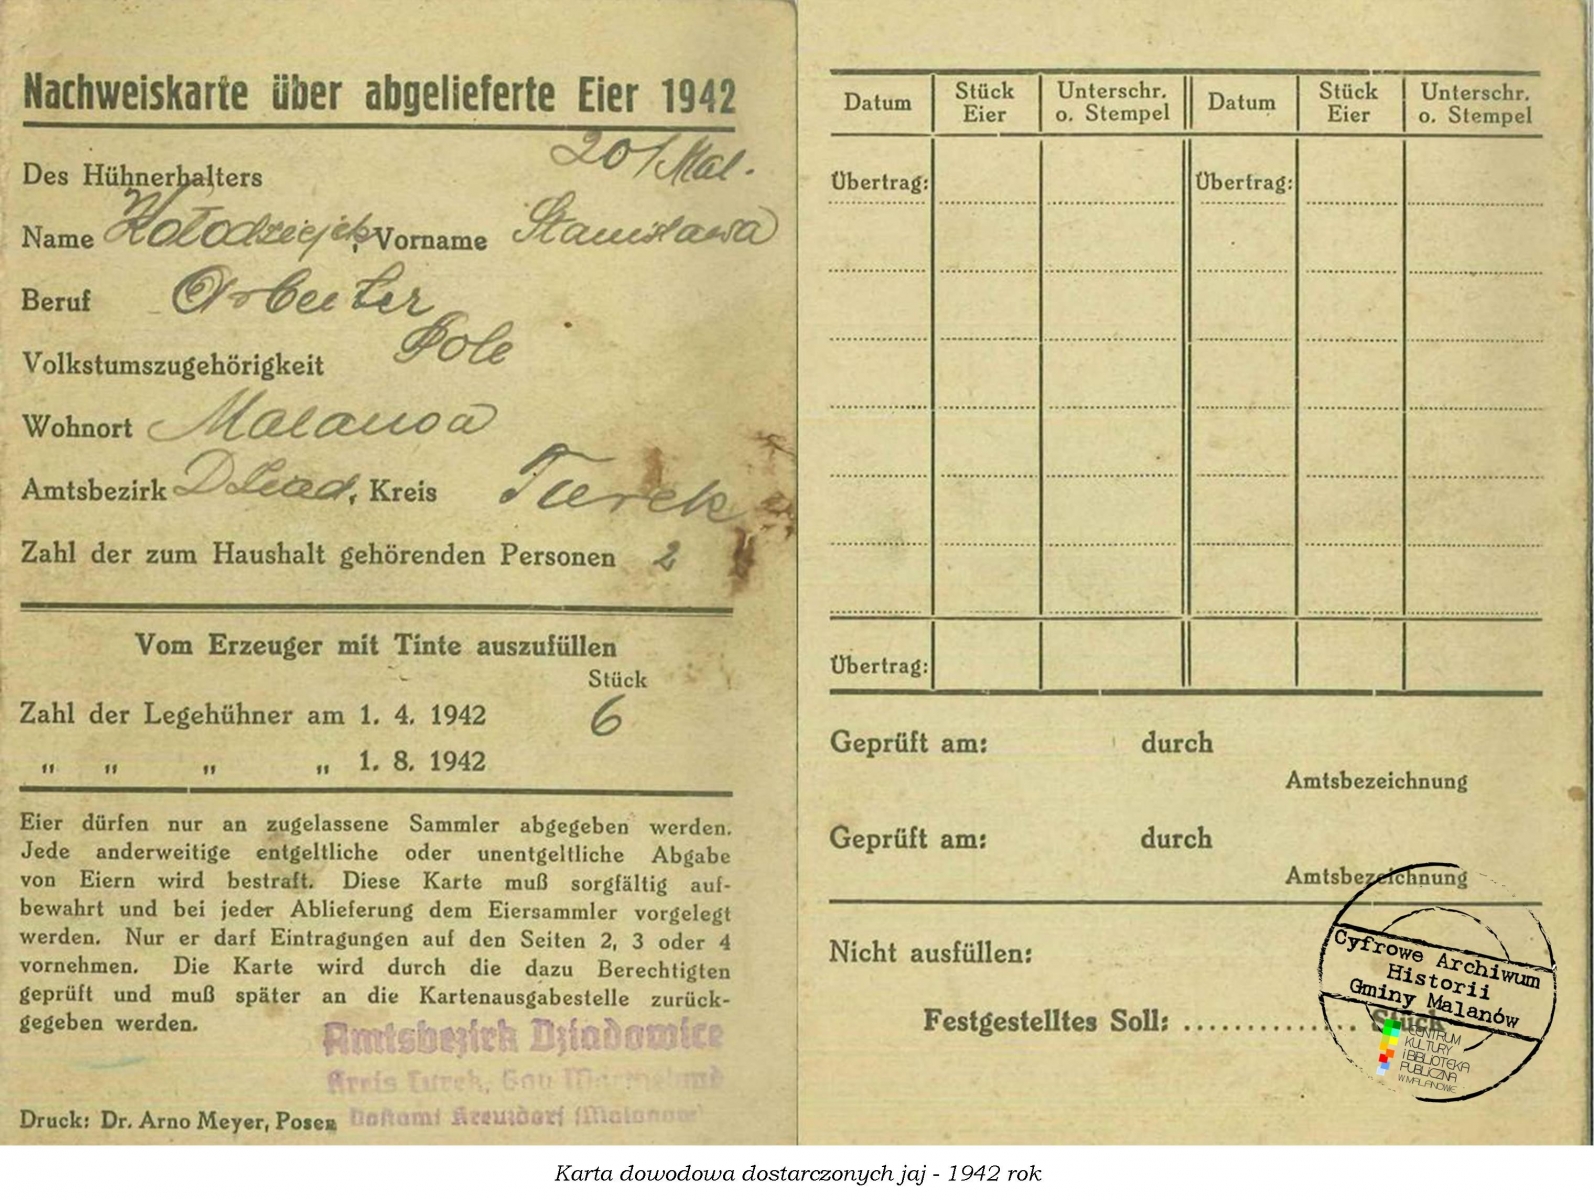 Nachweiskarte über abgelieferte Eier 1942
20/Mal.
Des Hühnerhalters
Name Kołodziejek, Vorname Stanisława
Beruf Arbeiter
Volkstumszugehörigkeit Pole
Wohnort Malanoa
Amtsbezirk Dziad, Kreis Turek
Zahl der zum Haushalt gehörenden Personen 2
Vom Erzeuger mit Tinte auszufüllen
Stück
Zahl der Legehühner am 1. 4. 1942 6
„ „ „ „ 1. 8. 1942
Eier dürfen nur an zugelassene Sammler abgegeben werden.
Jede anderweitige entgeltliche oder unentgeltliche Abgabe
von Eiern wird bestraft. Diese Karte muß sorgfältig auf-
bewahrt und bei jeder Ablieferung dem Eiersammler vorgelegt
werden. Nur er darf Eintragungen auf den Seiten 2, 3 oder 4
vornehmen. Die Karte wird durch die dazu Berechtigten
geprüft und muß später an die Kartenausgabestelle zurück-
gegeben werden.
Amtsbezirk Dziadowice
Kreis Turek, Gau Wartheland
Postamt (Malanow)
Druck: Dr. Arno Meyer, Posen
Datum Stück Eier Unterschr. o. Stempel Datum Stück Eier Unterschr. o. Stempel
Übertrag: Übertrag:
Übertrag:
Geprüft am: durch
Amtsbezeichnung
Geprüft am: durch
Amtsbezeichnung
Nicht ausfüllen:
Festgestelltes Soll: .............. Stück
Cyfrowe Archiwum
Historii
Gminy Malanów
CENTRUM
KULTURY
I BIBLIOTEKA
PUBLICZNA
W MALANOWIE
Karta dowodowa dostarczonych jaj - 1942 rok